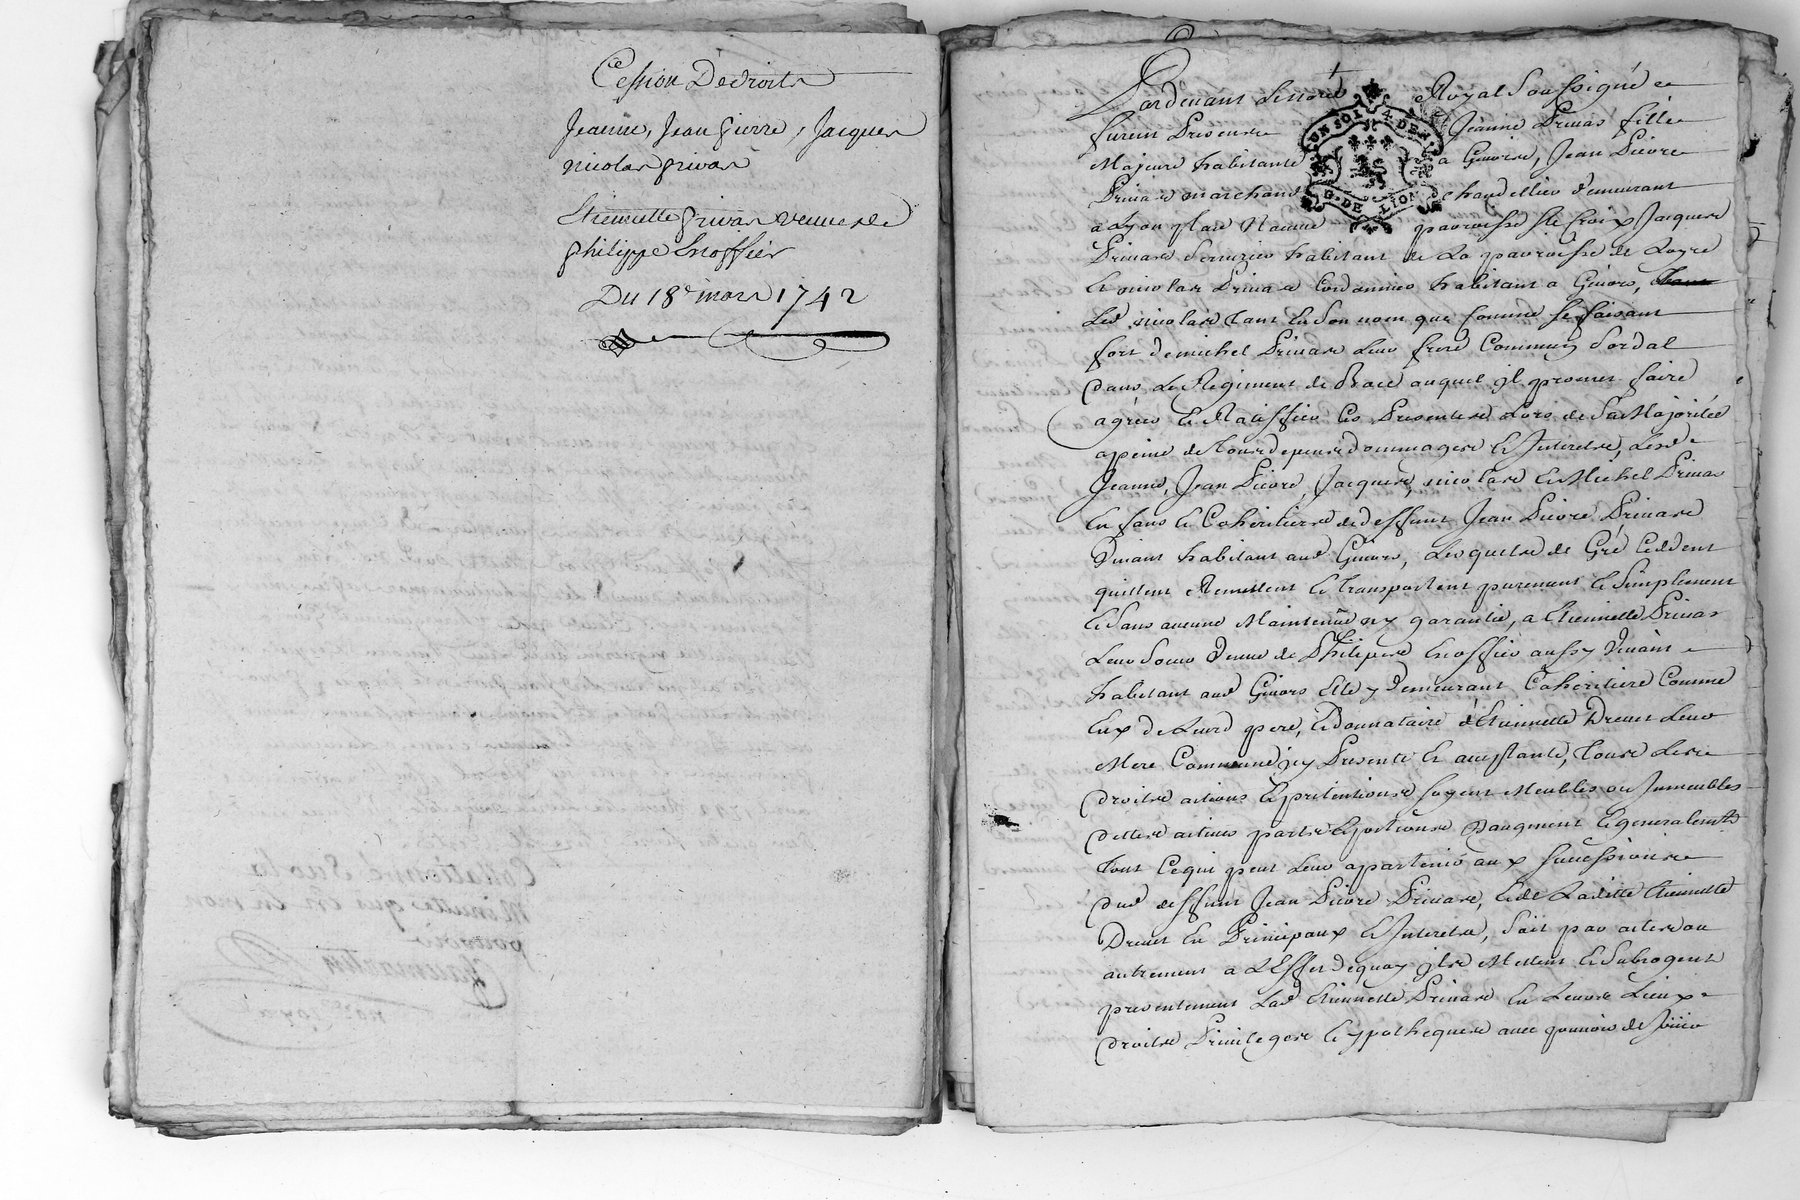 Cession De droits
Jeanne, Jean pierre, Jacques
nicolas privas
Etiennette privas veuve de
philippe Snoffier
Du 18e mars 1742
Pardevant Le notaire Royal Soussigné et
furent Presents Jeanne Privas fille
Majeure habitante a Givors, Jean Pierre
Privas marchand chandellier demeurant
a Lyon place Neuve parroisse Ste Croix Jacques
Privas Serrurier habitant de La parroisse de Loyre
Et nicolas Privas Cordonnier habitant a Givors,
Led nicolas tant En Son nom que Comme Se faisant
fort de michel Privas Leur frere Commun Sordat
dans Le Regiment de auquel jl promet faire
agréer Et Ratiffier Ces Presentes Lors de Sa Majoritée
apeine de tous depens dommages Et Interets, Lesd
Jeanne, Jean Pierre, Jacques, nicolas Et Michel Privas
Enfans Et Coheritiers de deffunt Jean Pierre Privas
Vivant habitant aud Givors, Lesquels de Gré Ceddent
quittent Remettent Et transportent purement Et Simplement
Et Sans aucune Maintenüe ny garantie, a Etiennette Privas
Leur Soeur Veuve de Philipe Snoffier aussy Vivant
habitant aud Givors Elle y demeurant Coheritiere Comme
Eux de Leurd pere, Et donnataire d'Etiennette Drevet Leur
Mere Commune jcy Presente Et acceptante, tous Les
droits actions Et pretentions soyent Meubles ou Immeubles
dettes actives parts Et portions d'augment Et generalemt
tout Ce qui peut Leur appartenir aux successions
dud deffunt Jean Pierre Privas, Et de Laditte Etiennette
Drevet En Principaux Et Interets, Soit par actes ou
autrement a L'Effet dequoy jls Mettent Et Subrogent
presentement Lad Etiennette Privas En Leurs Lieux
droits Privileges Et ypotheques avec pouvoir de
UN SOL 4 DEN
G. DE LION